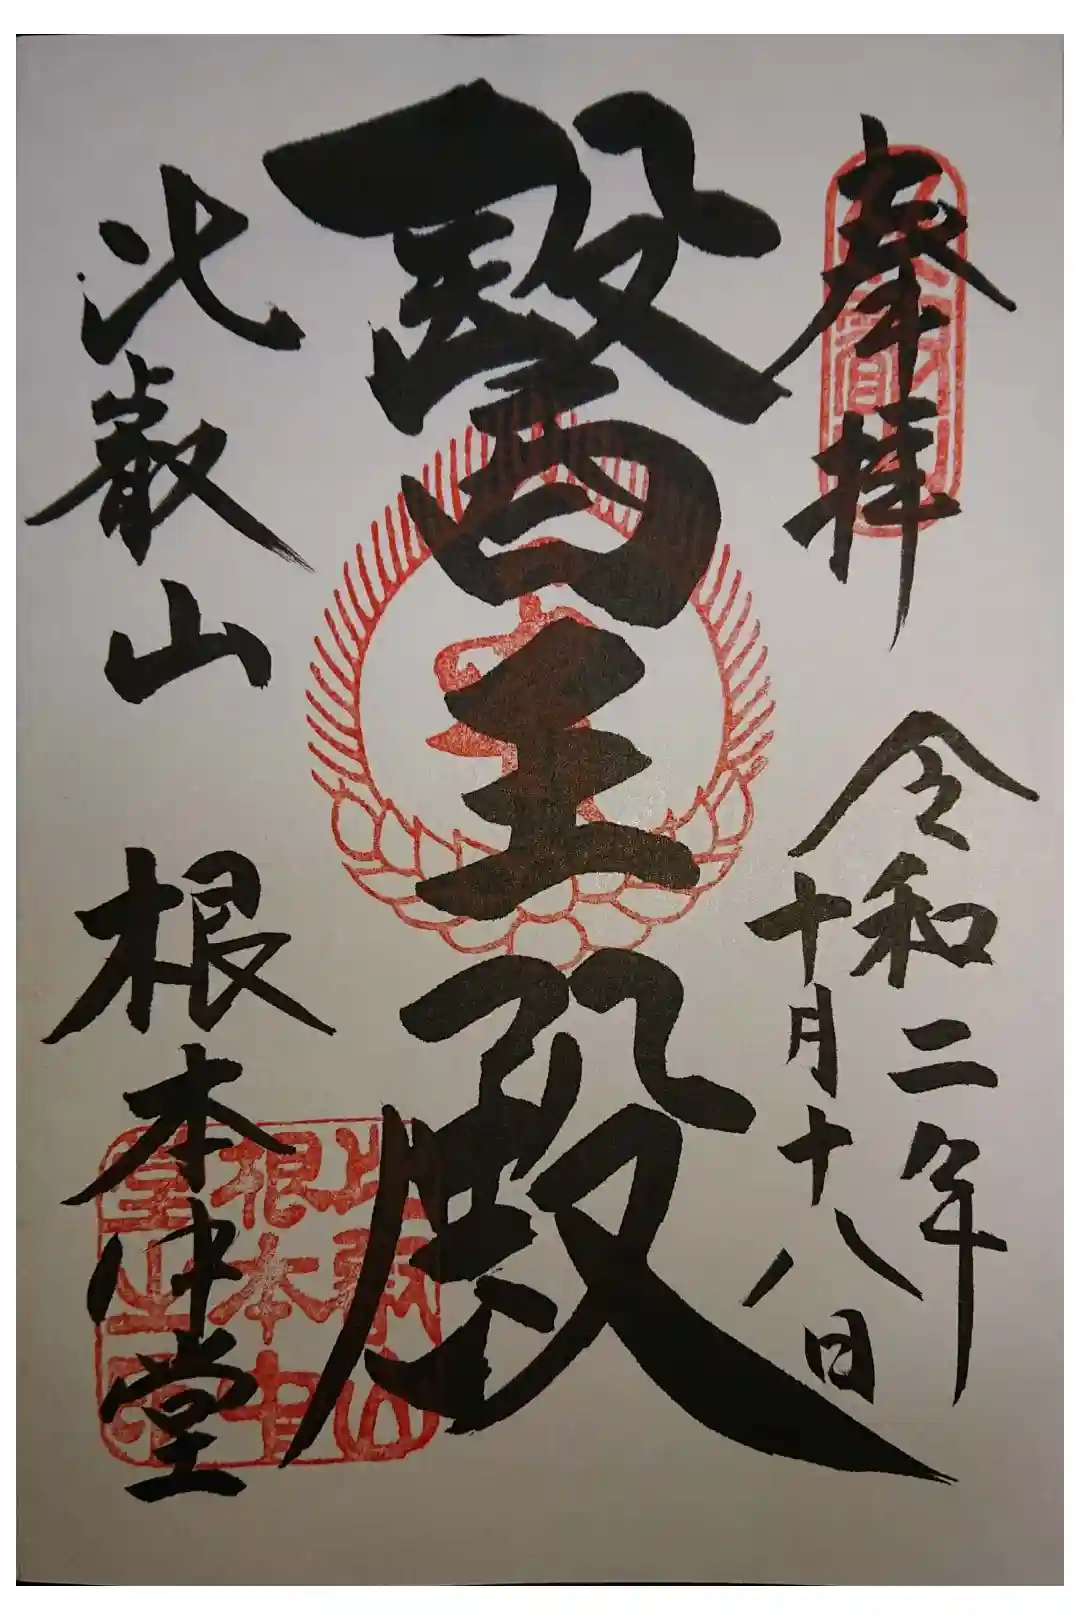 奉拝
令和二年
十月十八日
醫王殿
比叡山 根本中堂
比叡山
根本中
堂之印